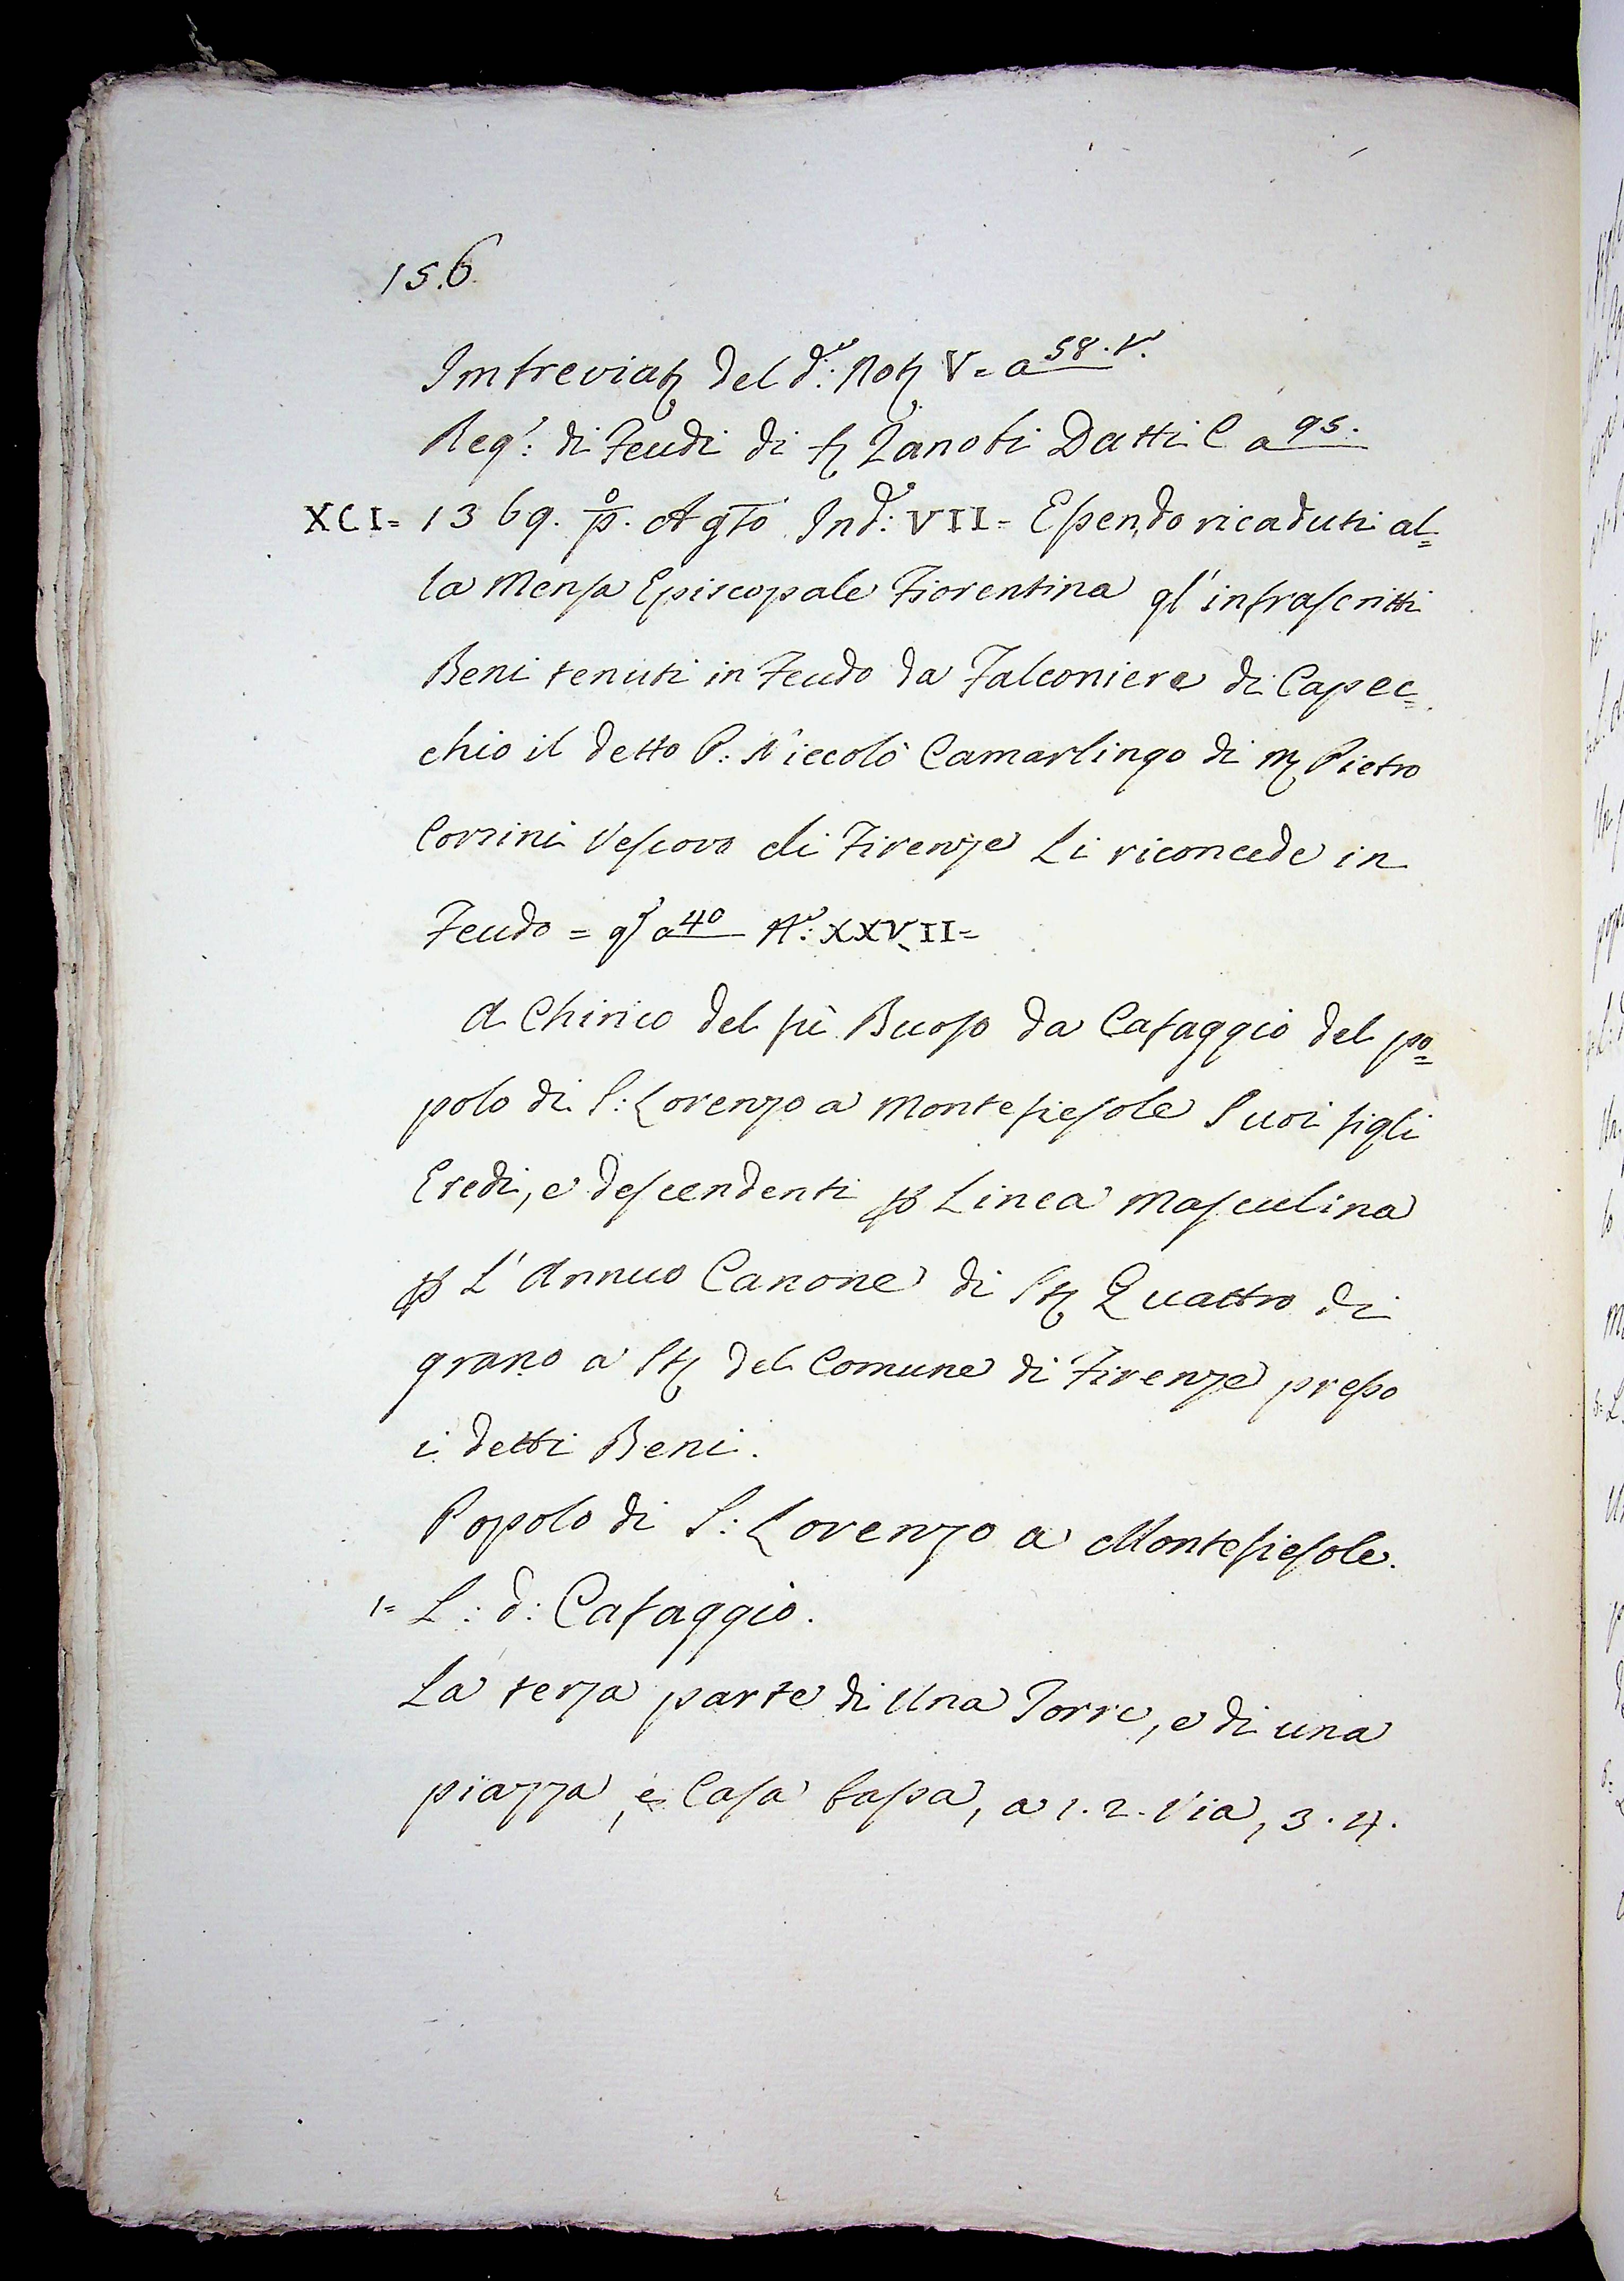 156.
Imbreviat. del d.º Not. V = a 58. v.
Reg.º di Feudi di S. Zanobi Datti C a 95.
XCI = 1369. p.º Agto Ind.e VII = Essendo ricaduti al=
la Mensa Episcopale Fiorentina gl'infrascritti
Beni tenuti in Feudo da Falconiere di Capec=
chio il detto P: Niccolò Camarlingo di M. Pietro
Corsini Vescovo di Firenze Li riconcede in
Feudo = qs a 40 N.º: XXVII =
A Chirico del fù Buoso da Cafaggio del po=
polo di S: Lorenzo a Montefiesole Suoi figli
Eredi, e descendenti p Linea Masculina
p L'Annuo Canone di St. Quattro di
grano a St. del Comune di Firenze presso
i detti Beni.
Popolo di S: Lorenzo a Montefiesole.
1= L: d: Cafaggio.
La terza parte di Una Torre, e di una
piazza, e Casa bassa, a 1. 2. Via, 3. 4.